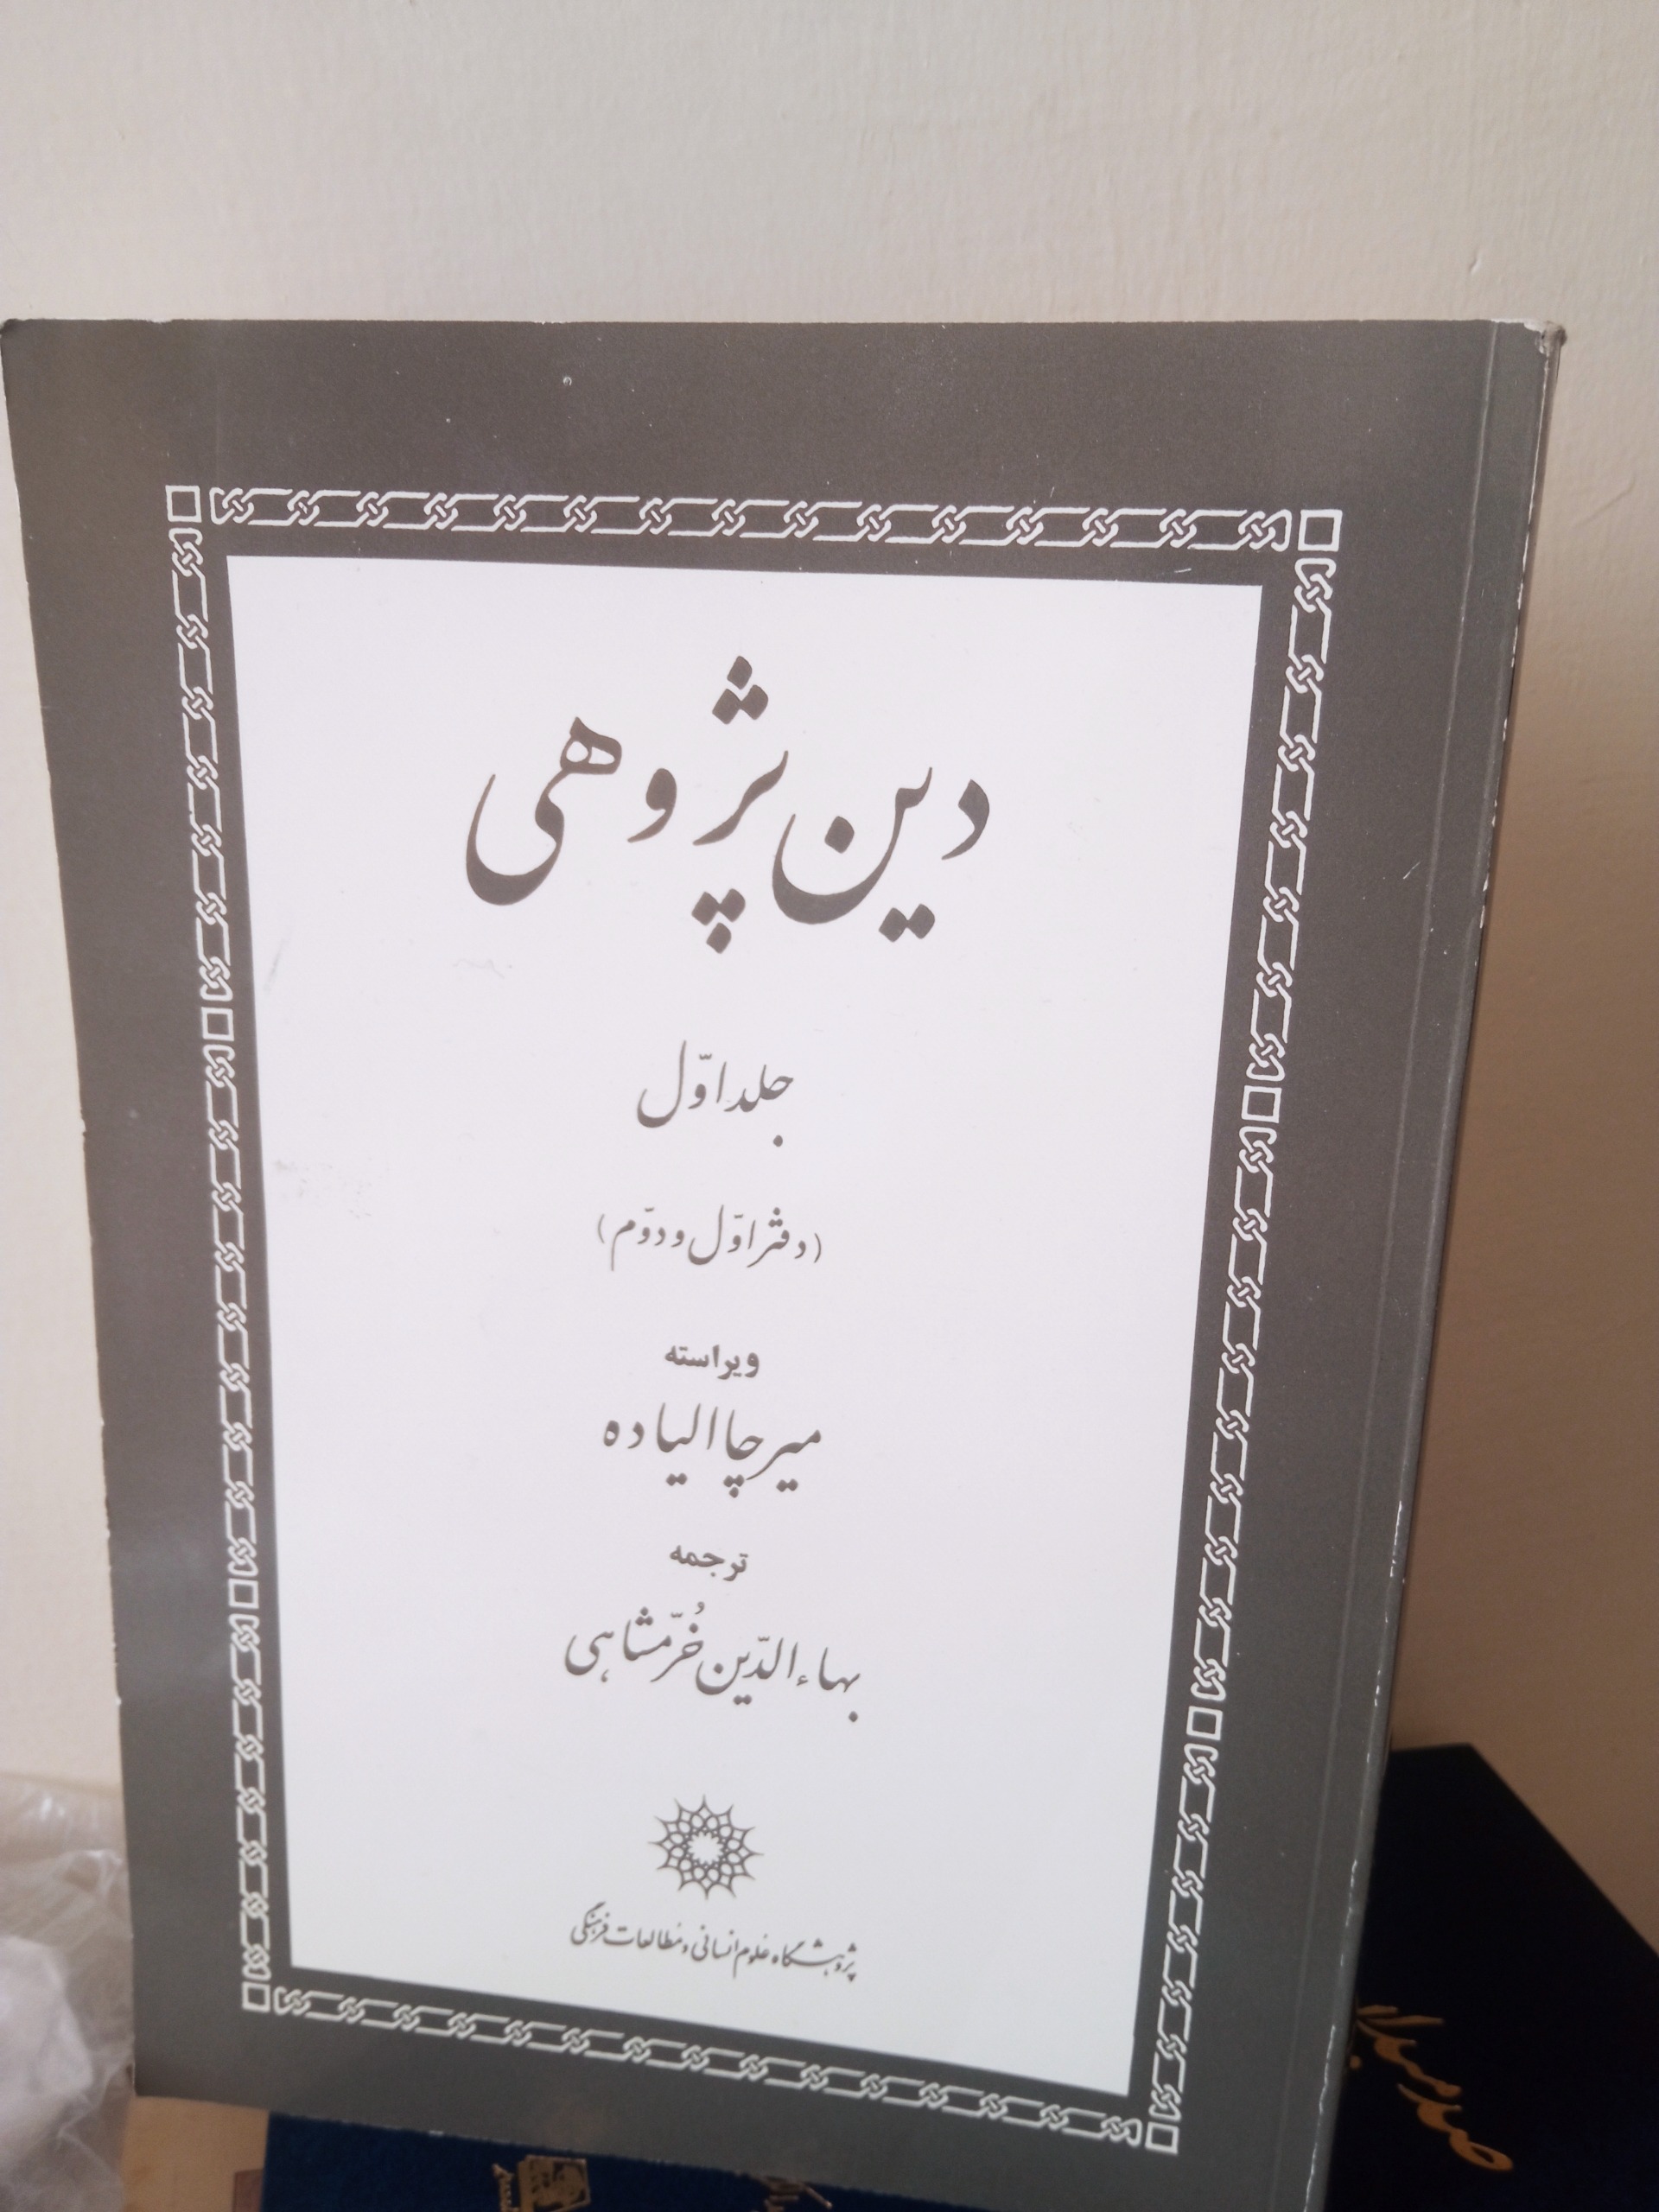 دین پژوهی
جلد اوّل
(دفتر اوّل و دوّم)
ویراسته
میرچا الیاده
ترجمه
بهاءالدّین خُرّمشاهی
پژوهشگاه علوم انسانی و مطالعات فرهنگی